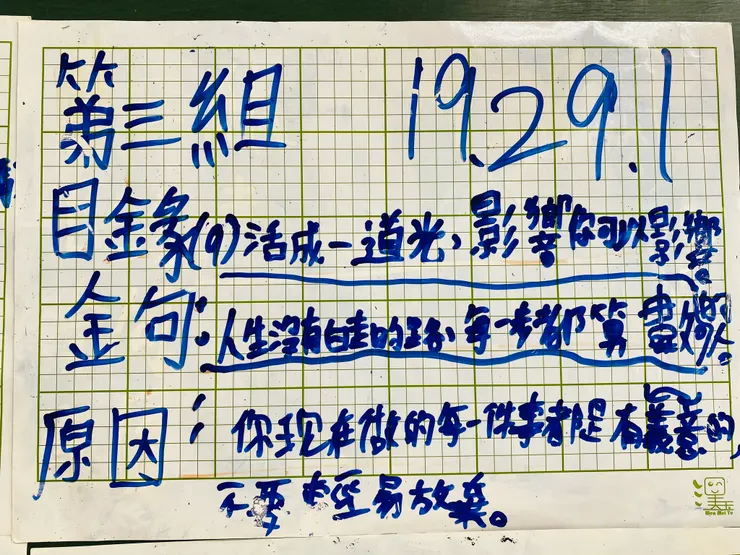 第三組 19.29.1
目錄(9)活成一道光,影響你可以影響的人。
金句:人生沒有白走的路,每一步都算數
原因:你現在做的每一件事都是有義意的,
不要輕易放棄。